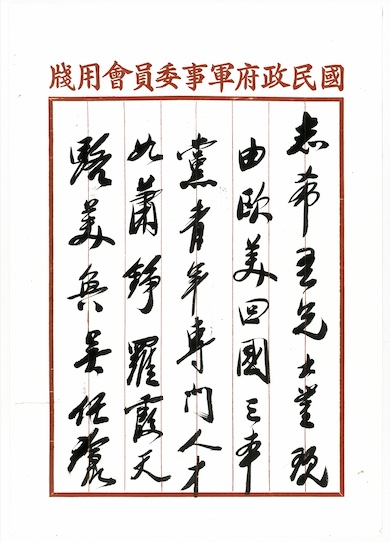 國民政府軍事委員會用牋
志希吾兄大鑒現
由歐美回國之本
黨青年專門人才
如蕭錚羅霞天
駱美奐吳任滄